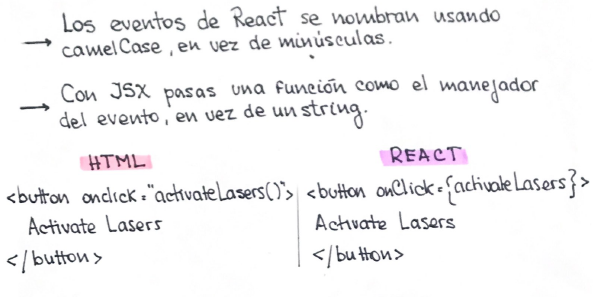 → Los eventos de React se nombran usando
camelCase, en vez de minúsculas.
→ Con JSX pasas una función como el manejador
del evento, en vez de un string.
HTML
<button onclick="activateLasers()">
Activate Lasers
</button>
REACT
<button onClick={activateLasers}>
Activate Lasers
</button>